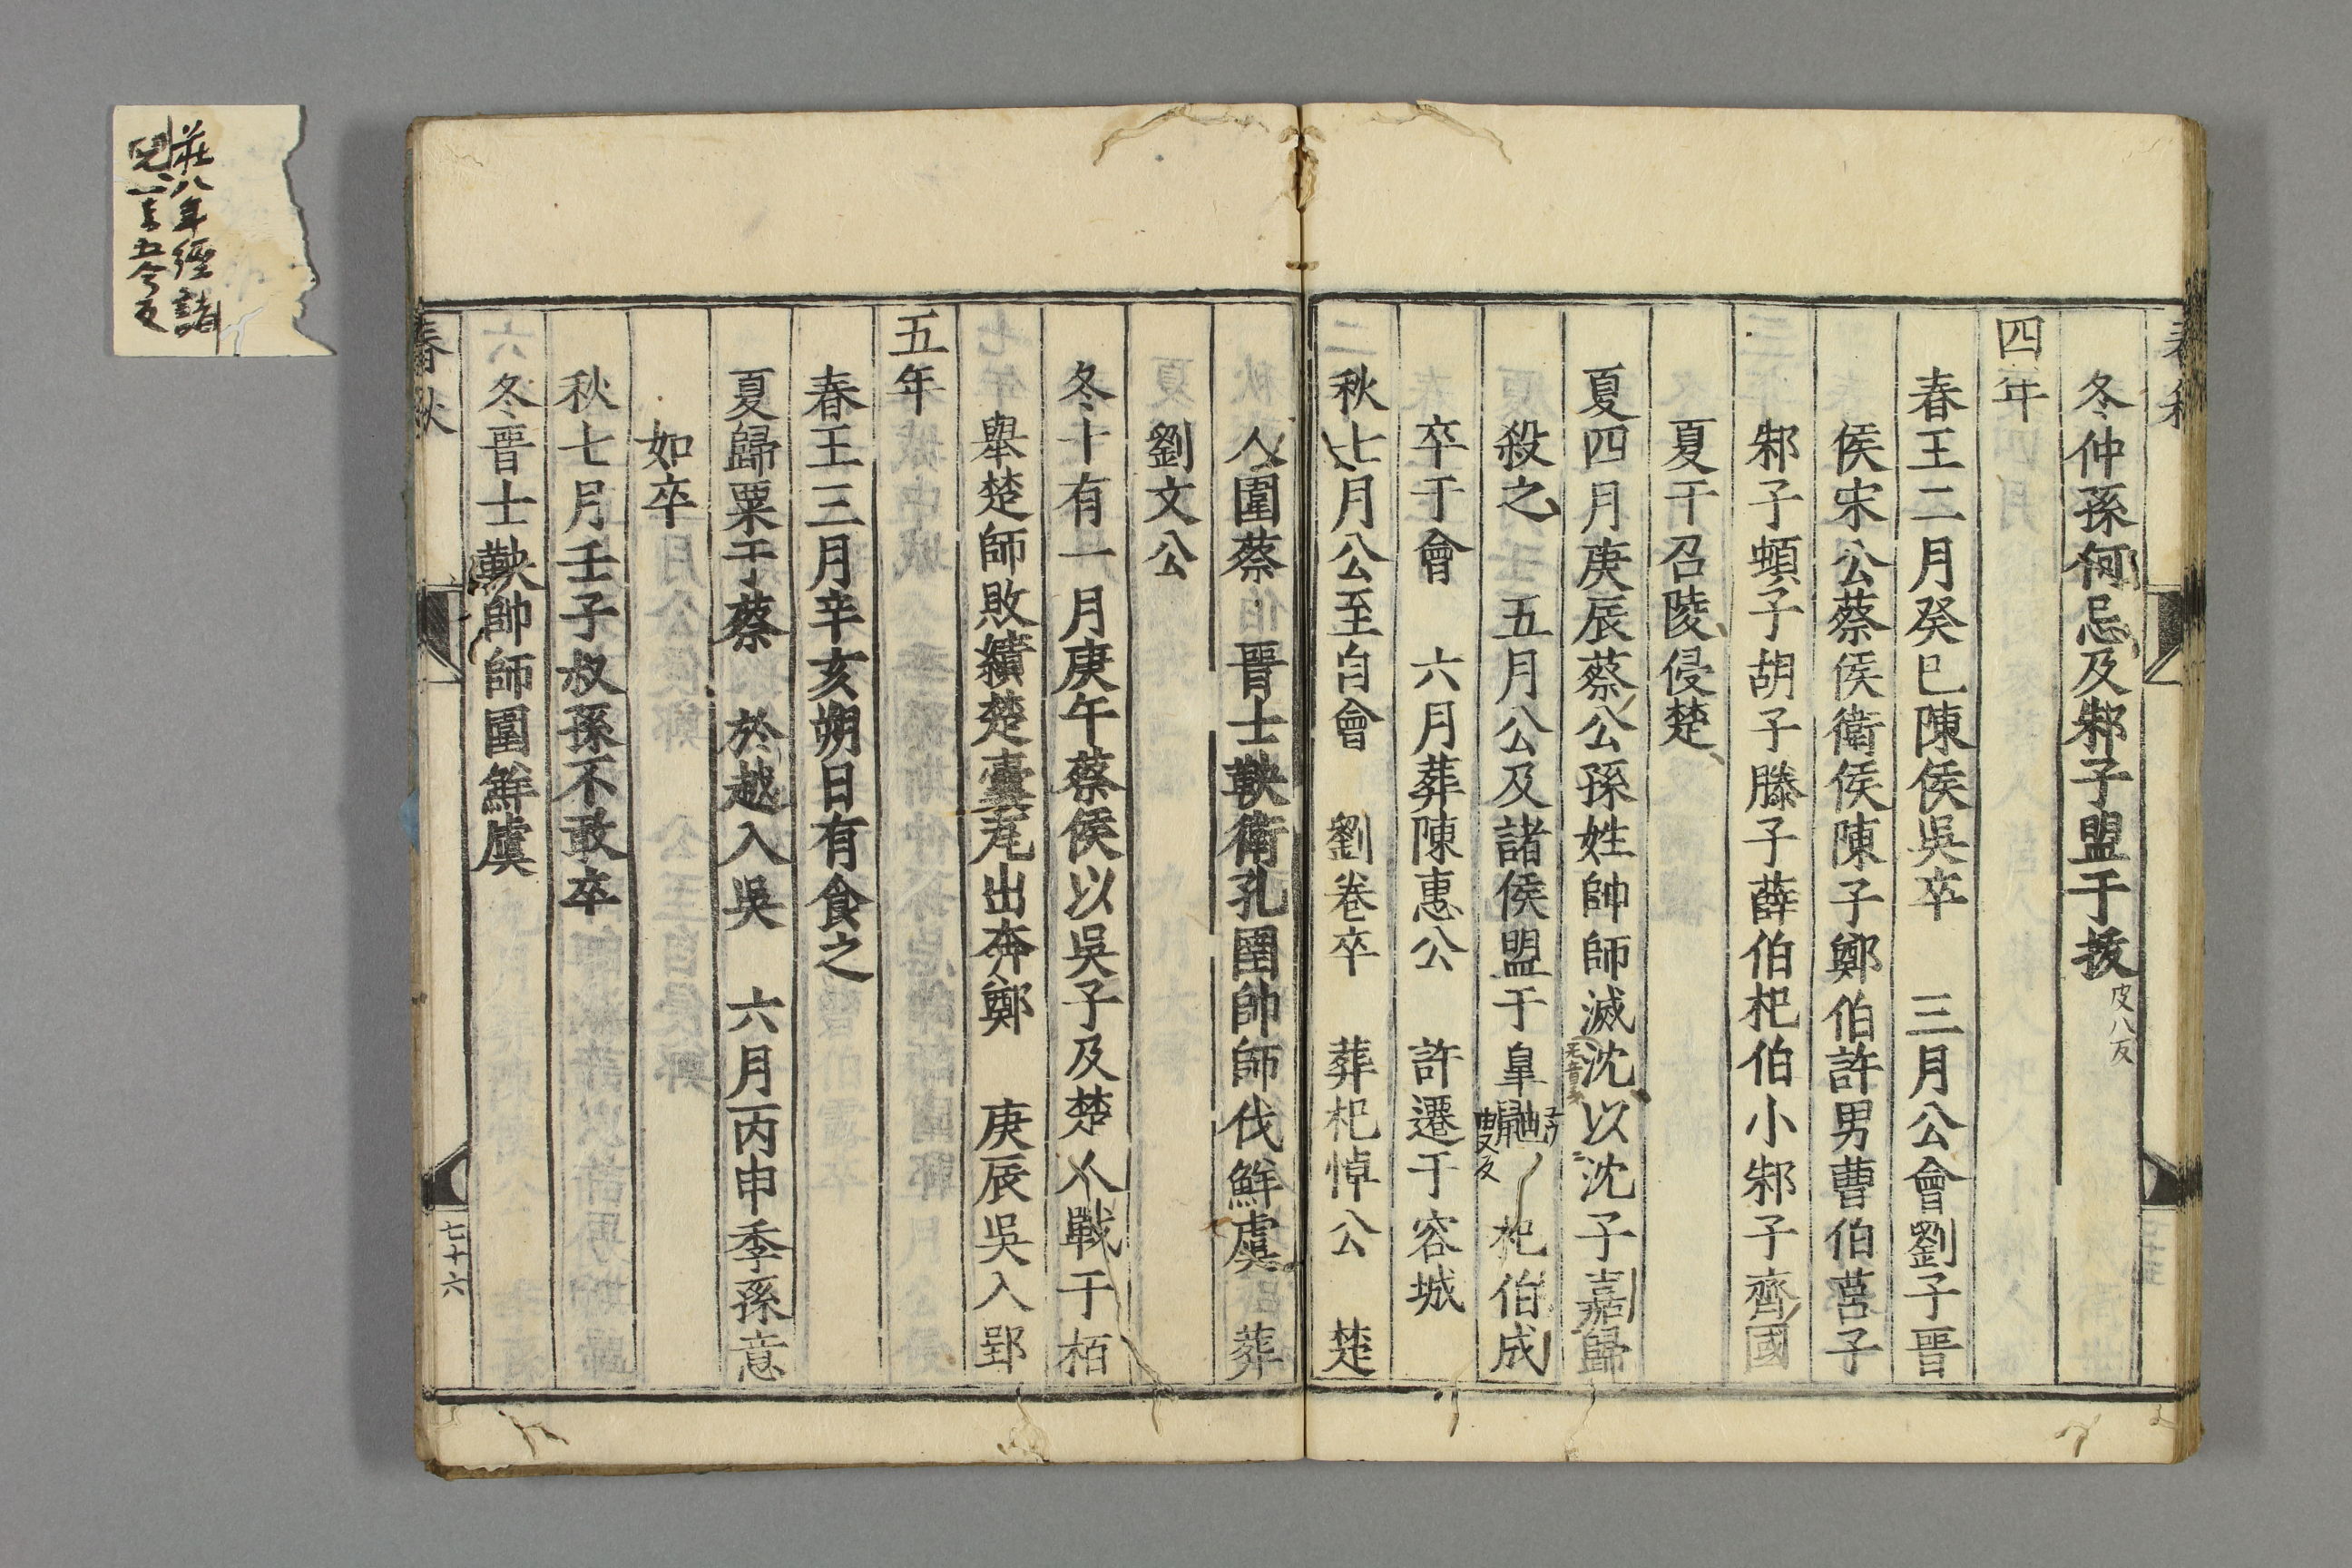 冬仲孫何忌及邾子盟于拔
皮八反
四年
春王二月癸巳陳侯吳卒 三月公會劉子晉
侯宋公蔡侯衛侯陳子鄭伯許男曹伯莒子
邾子頓子胡子滕子薛伯杞伯小邾子齊國
夏于召陵侵楚
夏四月庚辰蔡公孫姓帥師滅沈以沈子嘉歸
殺之 五月公及諸侯盟于皐鼬 杞伯成
卒于會 六月葬陳惠公 許遷于容城
秋七月公至自會 劉卷卒 葬杞悼公 楚
人圍蔡 晉士鞅衛孔圉帥師伐鮮虞 葬
劉文公
冬十有一月庚午蔡侯以吳子及楚人戰于栢
舉楚師敗績楚囊瓦出奔鄭 庚辰吳入郢
五年
春王三月辛亥朔日有食之
夏歸粟于蔡 於越入吳 六月丙申季孫意
如卒
秋七月壬子叔孫不敢卒
冬晉士鞅帥師圍鮮虞
春秋
七十六
莊八年經諸
兒一音五今反